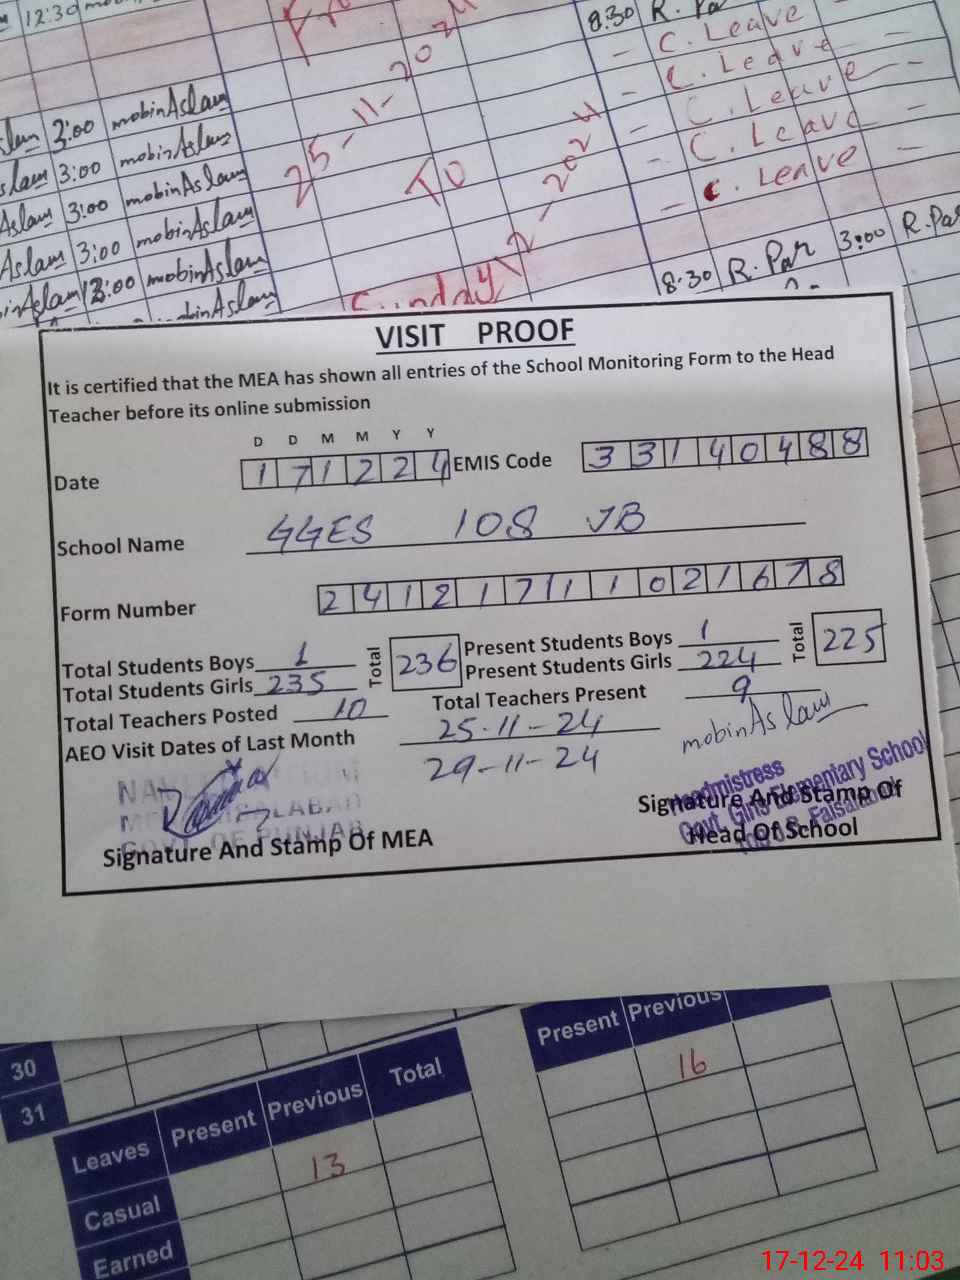 12:30
8:30 R. Par
C. Leave
C. Leave
C. Leave
C. Leave
C. Leave
3:00 mobinAslam
3:00 mobinAslam
Aslam 3:00 mobinAslam
Aslam 3:00 mobinAslam
3:00 mobinAslam
25-11-2024
To
2024
Sunday
8.30 R. Par 3:00 R. Par
VISIT PROOF
It is certified that the MEA has shown all entries of the School Monitoring Form to the Head
Teacher before its online submission
D D M M Y Y
Date 171224 EMIS Code 33140488
School Name GGES 108 JB
Form Number 24121711021678
Total Students Boys 1 Total 236 Present Students Boys 1 Total 225
Total Students Girls 235 Present Students Girls 224
Total Teachers Posted 10 Total Teachers Present 9
AEO Visit Dates of Last Month 25-11-24
29-11-24
mobinAslam
Headmistress
Govt. Girls Elementary School
Signature And Stamp Of MEA
Signature And Stamp Of
Head Of School
30
31
Leaves Present Previous Total
13
Casual
Earned
Present Previous
16
17-12-24 11:03